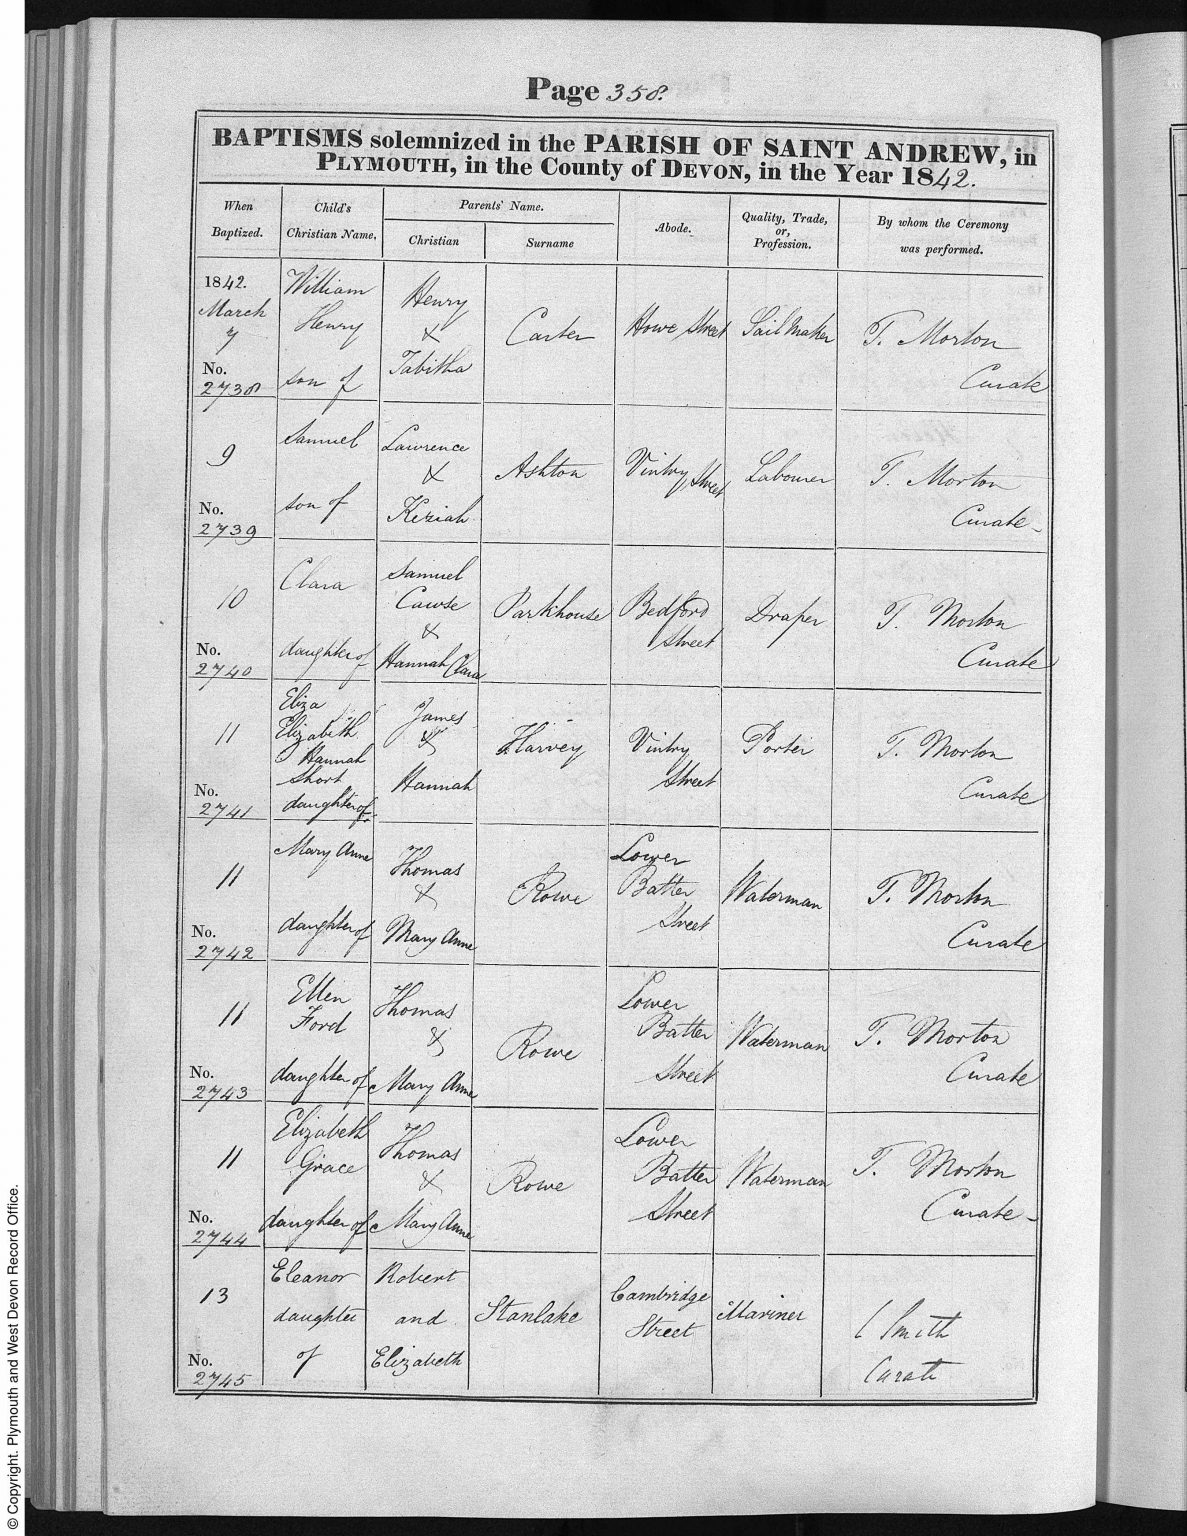 Page 358.
BAPTISMS solemnized in the PARISH OF SAINT ANDREW, in
PLYMOUTH, in the County of DEVON, in the Year 1842.
When
Baptized.
Child's
Christian Name.
Parents' Name.
Christian
Surname
Abode.
Quality, Trade,
or,
Profession.
By whom the Ceremony
was performed.
1842.
March
7
No.
2738
William
Henry
son of
Henry
&
Tabitha
Carter
Howe Street
Sail Maker
T. Morton
Curate
9
No.
2739
Samuel
son of
Lawrence
&
Keziah
Ashton
Vintry Street
Labourer
T. Morton
Curate
10
No.
2740
Clara
daughter of
Samuel
Cawse
&
Hannah Clara
Parkhouse
Bedford
Street
Draper
T. Morton
Curate
11
No.
2741
Eliza
Elizabeth
Hannah
Short
daughter of
James
&
Hannah
Harvey
Vintry
Street
Porter
T. Morton
Curate
11
No.
2742
Mary Anne
daughter of
Thomas
&
Mary Anne
Rowe
Lower
Batter
Street
Waterman
T. Morton
Curate
11
No.
2743
Ellen
Ford
daughter of
Thomas
&
Mary Anne
Rowe
Lower
Batter
Street
Waterman
T. Morton
Curate
11
No.
2744
Elizabeth
Grace
daughter of
Thomas
&
Mary Anne
Rowe
Lower
Batter
Street
Waterman
T. Morton
Curate
13
No.
2745
Eleanor
daughter
of
Robert
and
Elizabeth
Stanlake
Cambridge
Street
Mariner
C Smith
Curate
© Copyright. Plymouth and West Devon Record Office.